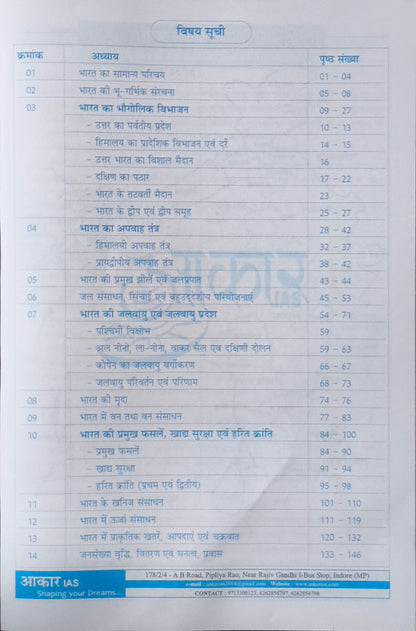 विषय सूची
क्रमांक अध्याय पृष्ठ संख्या
01 भारत का सामान्य परिचय 01 - 04
02 भारत की भू-गर्भिक संरचना 05 - 08
03 भारत का भौगोलिक विभाजन 09 - 27
- उत्तर का पर्वतीय प्रदेश 10 - 13
- हिमालय का प्रादेशिक विभाजन एवं दर्रे 14 - 15
- उत्तर भारत का विशाल मैदान 16
- दक्षिण का पठार 17 - 22
- भारत के तटवर्ती मैदान 23
- भारत के द्वीप एवं द्वीप समूह 25 - 27
04 भारत का अपवाह तंत्र 28 - 42
- हिमालयी अपवाह तंत्र 32 - 37
- प्रायद्वीपीय अपवाह तंत्र 38 - 42
05 भारत की प्रमुख झीलें एवं जलप्रपात 43 - 44
06 जल संसाधन, सिंचाई एवं बहुउद्देशीय परियोजनाएं 45 - 53
07 भारत की जलवायु एवं जलवायु प्रदेश 54 - 71
- पश्चिमी विक्षोभ 59
- अल नीनो, ला-नीना, वाकर सैल एव दक्षिणी दोलन 59 - 63
- कोपेन का जलवायु वर्गीकरण 66 - 67
- जलवायु परिवर्तन एवं परिणाम 68 - 73
08 भारत की मृदा 74 - 76
09 भारत में वन तथा वन संसाधन 77 - 83
10 भारत की प्रमुख फसलें, खाद्य सुरक्षा एवं हरित क्रांति 84 - 100
- प्रमुख फसलें 84 - 90
- खाद्य सुरक्षा 91 - 94
- हरित क्रांति (प्रथम एवं द्वितीय) 95 - 98
11 भारत के खनिज संसाधन 101 - 110
12 भारत में ऊर्जा संसाधन 111 - 119
13 भारत में प्राकृतिक खतरें, आपदाएं एवं चक्रवात 120 - 132
14 जनसंख्या वृद्धि, वितरण एवं घनत्व, प्रवास 133 - 146
आकार IAS
Shaping your Dreams....
178/2/4 - A B Road, Pipliya Rao, Near Rajiv Gandhi I-Bus Stop, Indore (MP)
CONTACT : 9713300123, 6262856797, 6262856798
आकार
IAS